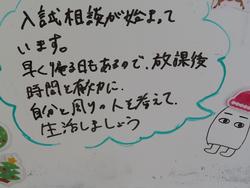 入試相談が始まって
います。
早く帰る日もあるので、放課後
時間を有効に、
自分と周りの人を考えて、
生活しましょう